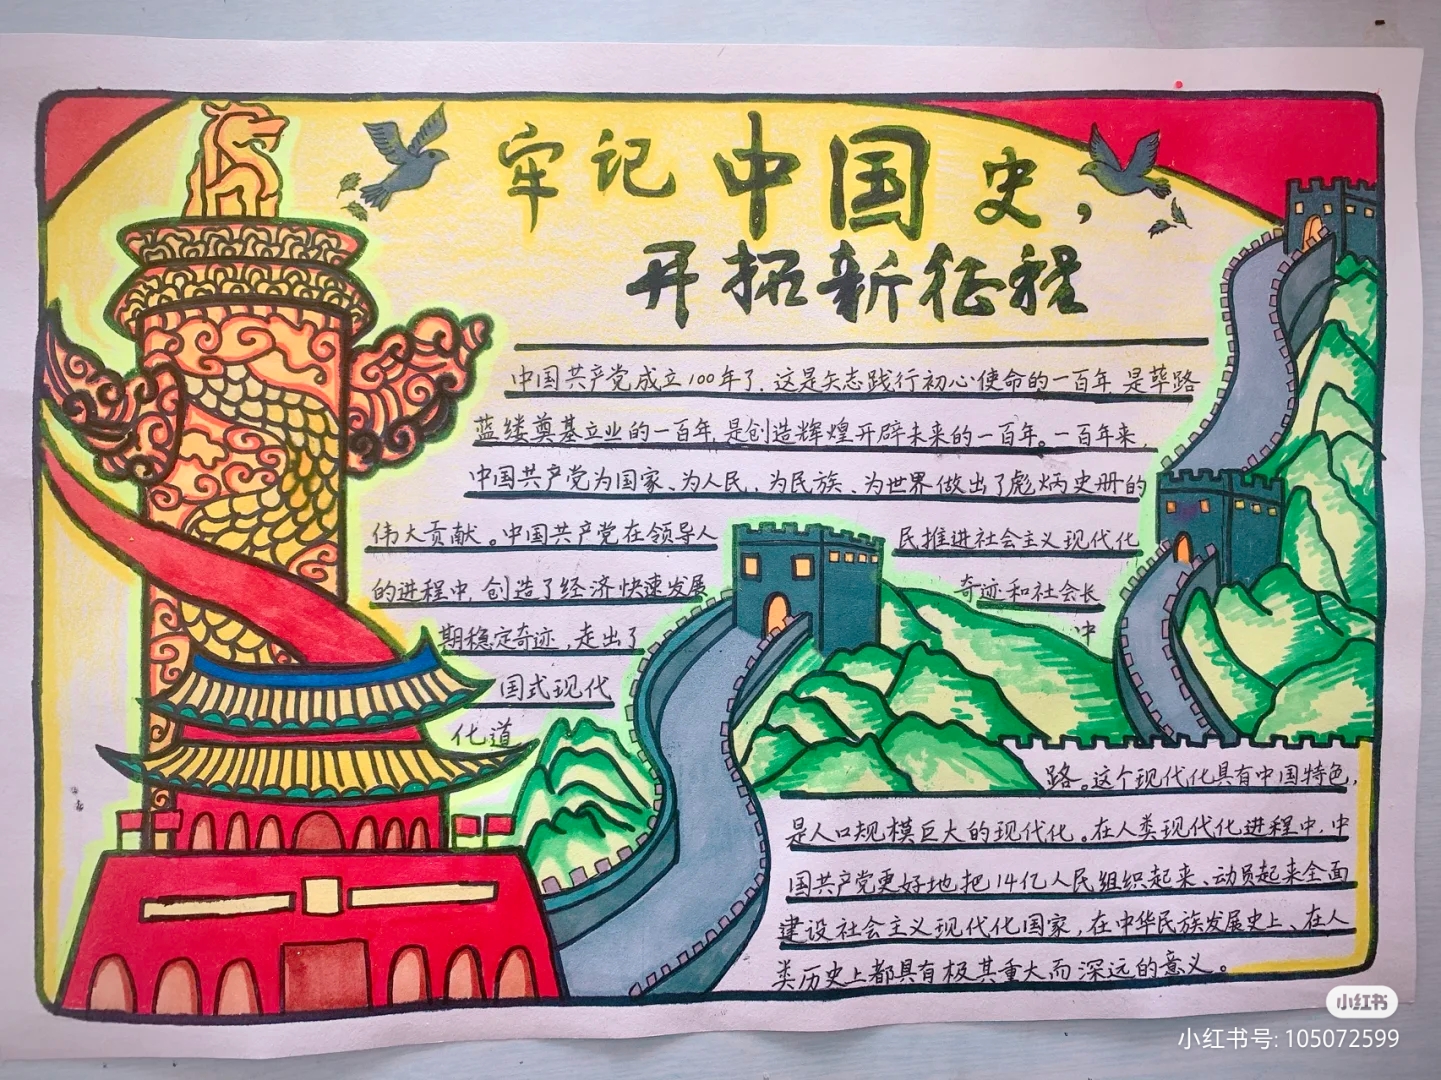 牢记中国史，
开拓新征程
中国共产党成立100年了，这是矢志践行初心使命的一百年，是筚路
蓝缕奠基立业的一百年，是创造辉煌开辟未来的一百年。一百年来，
中国共产党为国家、为人民、为民族、为世界做出了彪炳史册的
伟大贡献。中国共产党在领导人民推进社会主义现代化
的进程中，创造了经济快速发展奇迹和社会长
期稳定奇迹，走出了中
国式现代
化道
路。这个现代化具有中国特色，
是人口规模巨大的现代化。在人类现代化进程中，中
国共产党更好地把14亿人民组织起来、动员起来全面
建设社会主义现代化国家，在中华民族发展史上、在人
类历史上都具有极其重大而深远的意义。
小红书
小红书号: 105072599